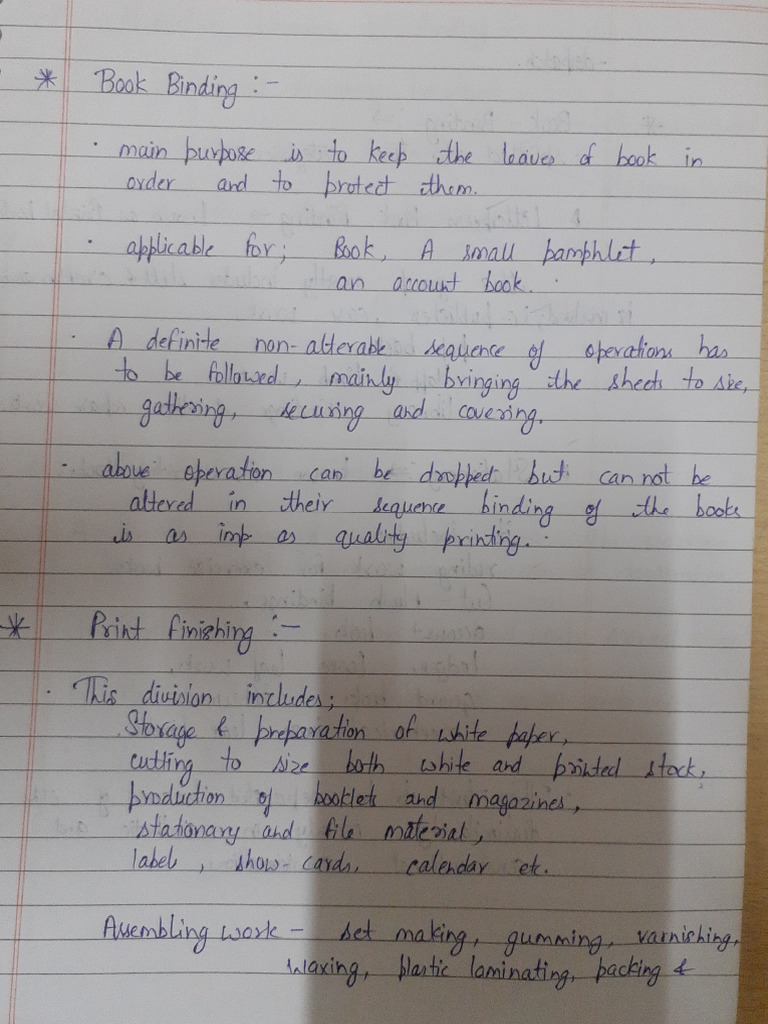 * Book Binding :-
· main purpose is to keep the leaves of book in
order and to protect them.
· applicable for; Book, A small pamphlet,
an account book.
· A definite non-alterable sequence of operations has
to be followed, mainly bringing the sheets to size,
gathering, securing and covering.
· above operation can be dropped but can not be
altered in their sequence binding of the books
is as imp as quality printing.
* Print finishing :-
· This division includes;
Storage & preparation of white paper,
cutting to size both white and printed stock,
production of booklets and magazines,
stationary and file material,
label, show-cards, calendar etc.
Assembling work - set making, gumming, varnishing,
waxing, plastic laminating, packing &